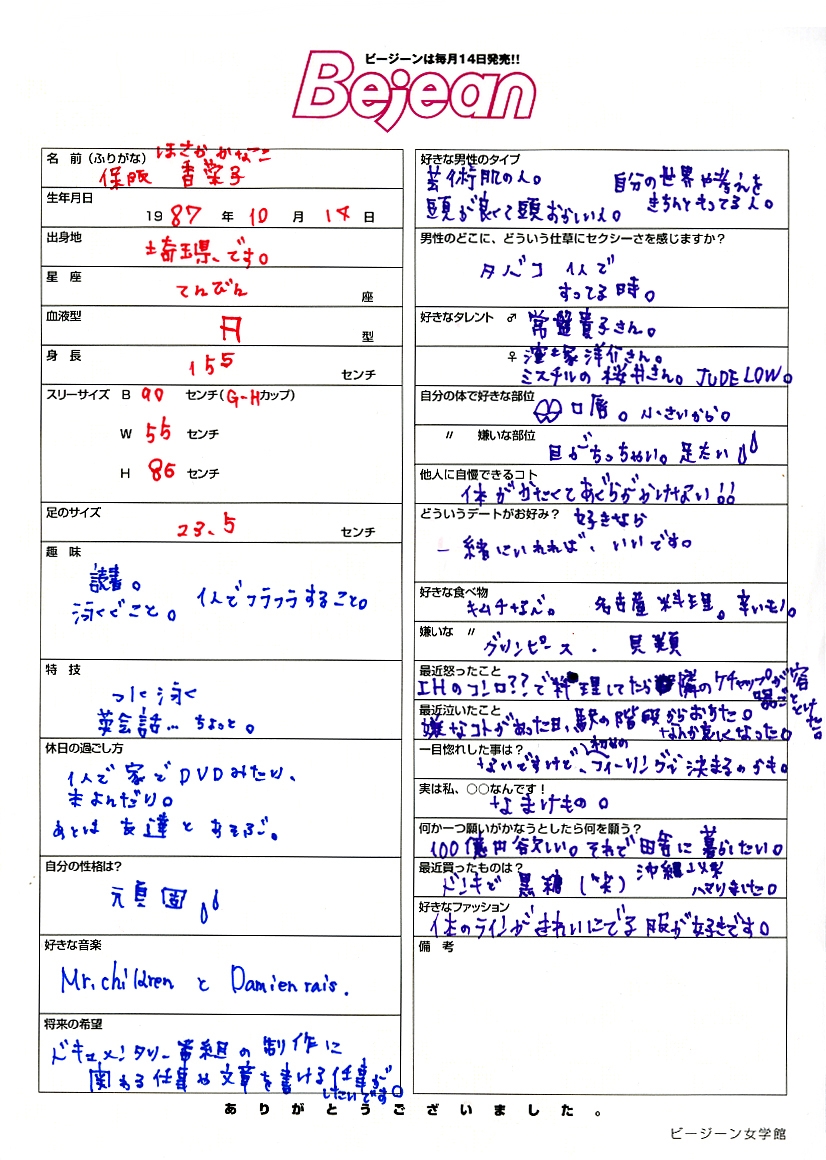 ビージーンは毎月14日発売!!
Bejean
名 前(ふりがな) ほさか かなこ
保阪 香菜子
生年月日
1987年10月14日
出身地
埼玉県、です。
星 座
てんびん 座
血液型
A 型
身 長
155 センチ
スリーサイズ B 90 センチ(G-Hカップ)
W 55 センチ
H 86 センチ
足のサイズ
23.5 センチ
趣 味
読書。
泳ぐこと。 1人でフラフラすること。
特 技
泳ぐ
英会話… ちょっと。
休日の過ごし方
1人で家でDVDみたり、
本よんだり。
あとは 友達と あそぶ。
自分の性格は?
頑固
好きな音楽
Mr.children と Damien rais.
将来の希望
ドキュメンタリー番組の制作に
関わる仕事や文章を書ける仕事が
したいです。
好きな男性のタイプ
芸術肌の人。 自分の世界や考えを
きちんともってる人。
頭が良くて頭おかしい人。
男性のどこに、どういう仕草にセクシーさを感じますか?
タバコ 1人で
すってる時。
好きなタレント ♂ 常盤貴子さん。
♀ 洋介さん。
ミスチルの桜井さん。JUDE LOW。
自分の体で好きな部位
口唇。小さいから。
〃 嫌いな部位
目がちっちゃい。足たい
他人に自慢できるコト
体がかたくてあぐらがかけない!!
どういうデートがお好み? 好きなら
一緒にいれれば、いいです。
好きな食べ物
キムチなど。 名古屋料理。辛いモノ。
嫌いな 〃
グリンピース・貝類
最近怒ったこと
IHのコンロ??で料理してたら隣のケチャップが容
器ごととけた。
最近泣いたこと
嫌なコトがあった日、駅の階段からおちた。
なんか哀しくなった。
一目惚れした事は?
ないですけど、初めのフィーリングで決まるのかも。
実は私、○○なんです!
なまけもの。
何か一つ願いがかなうとしたら何を願う?
100億円欲しい。それで田舎に暮らしたい。
最近買ったものは?
ドンキで黒糖(笑) 沖縄以来
ハマりました。
好きなファッション
体のラインがきれいにでる服が好きです。
備 考
ありがとうございました。
ビージーン女学館